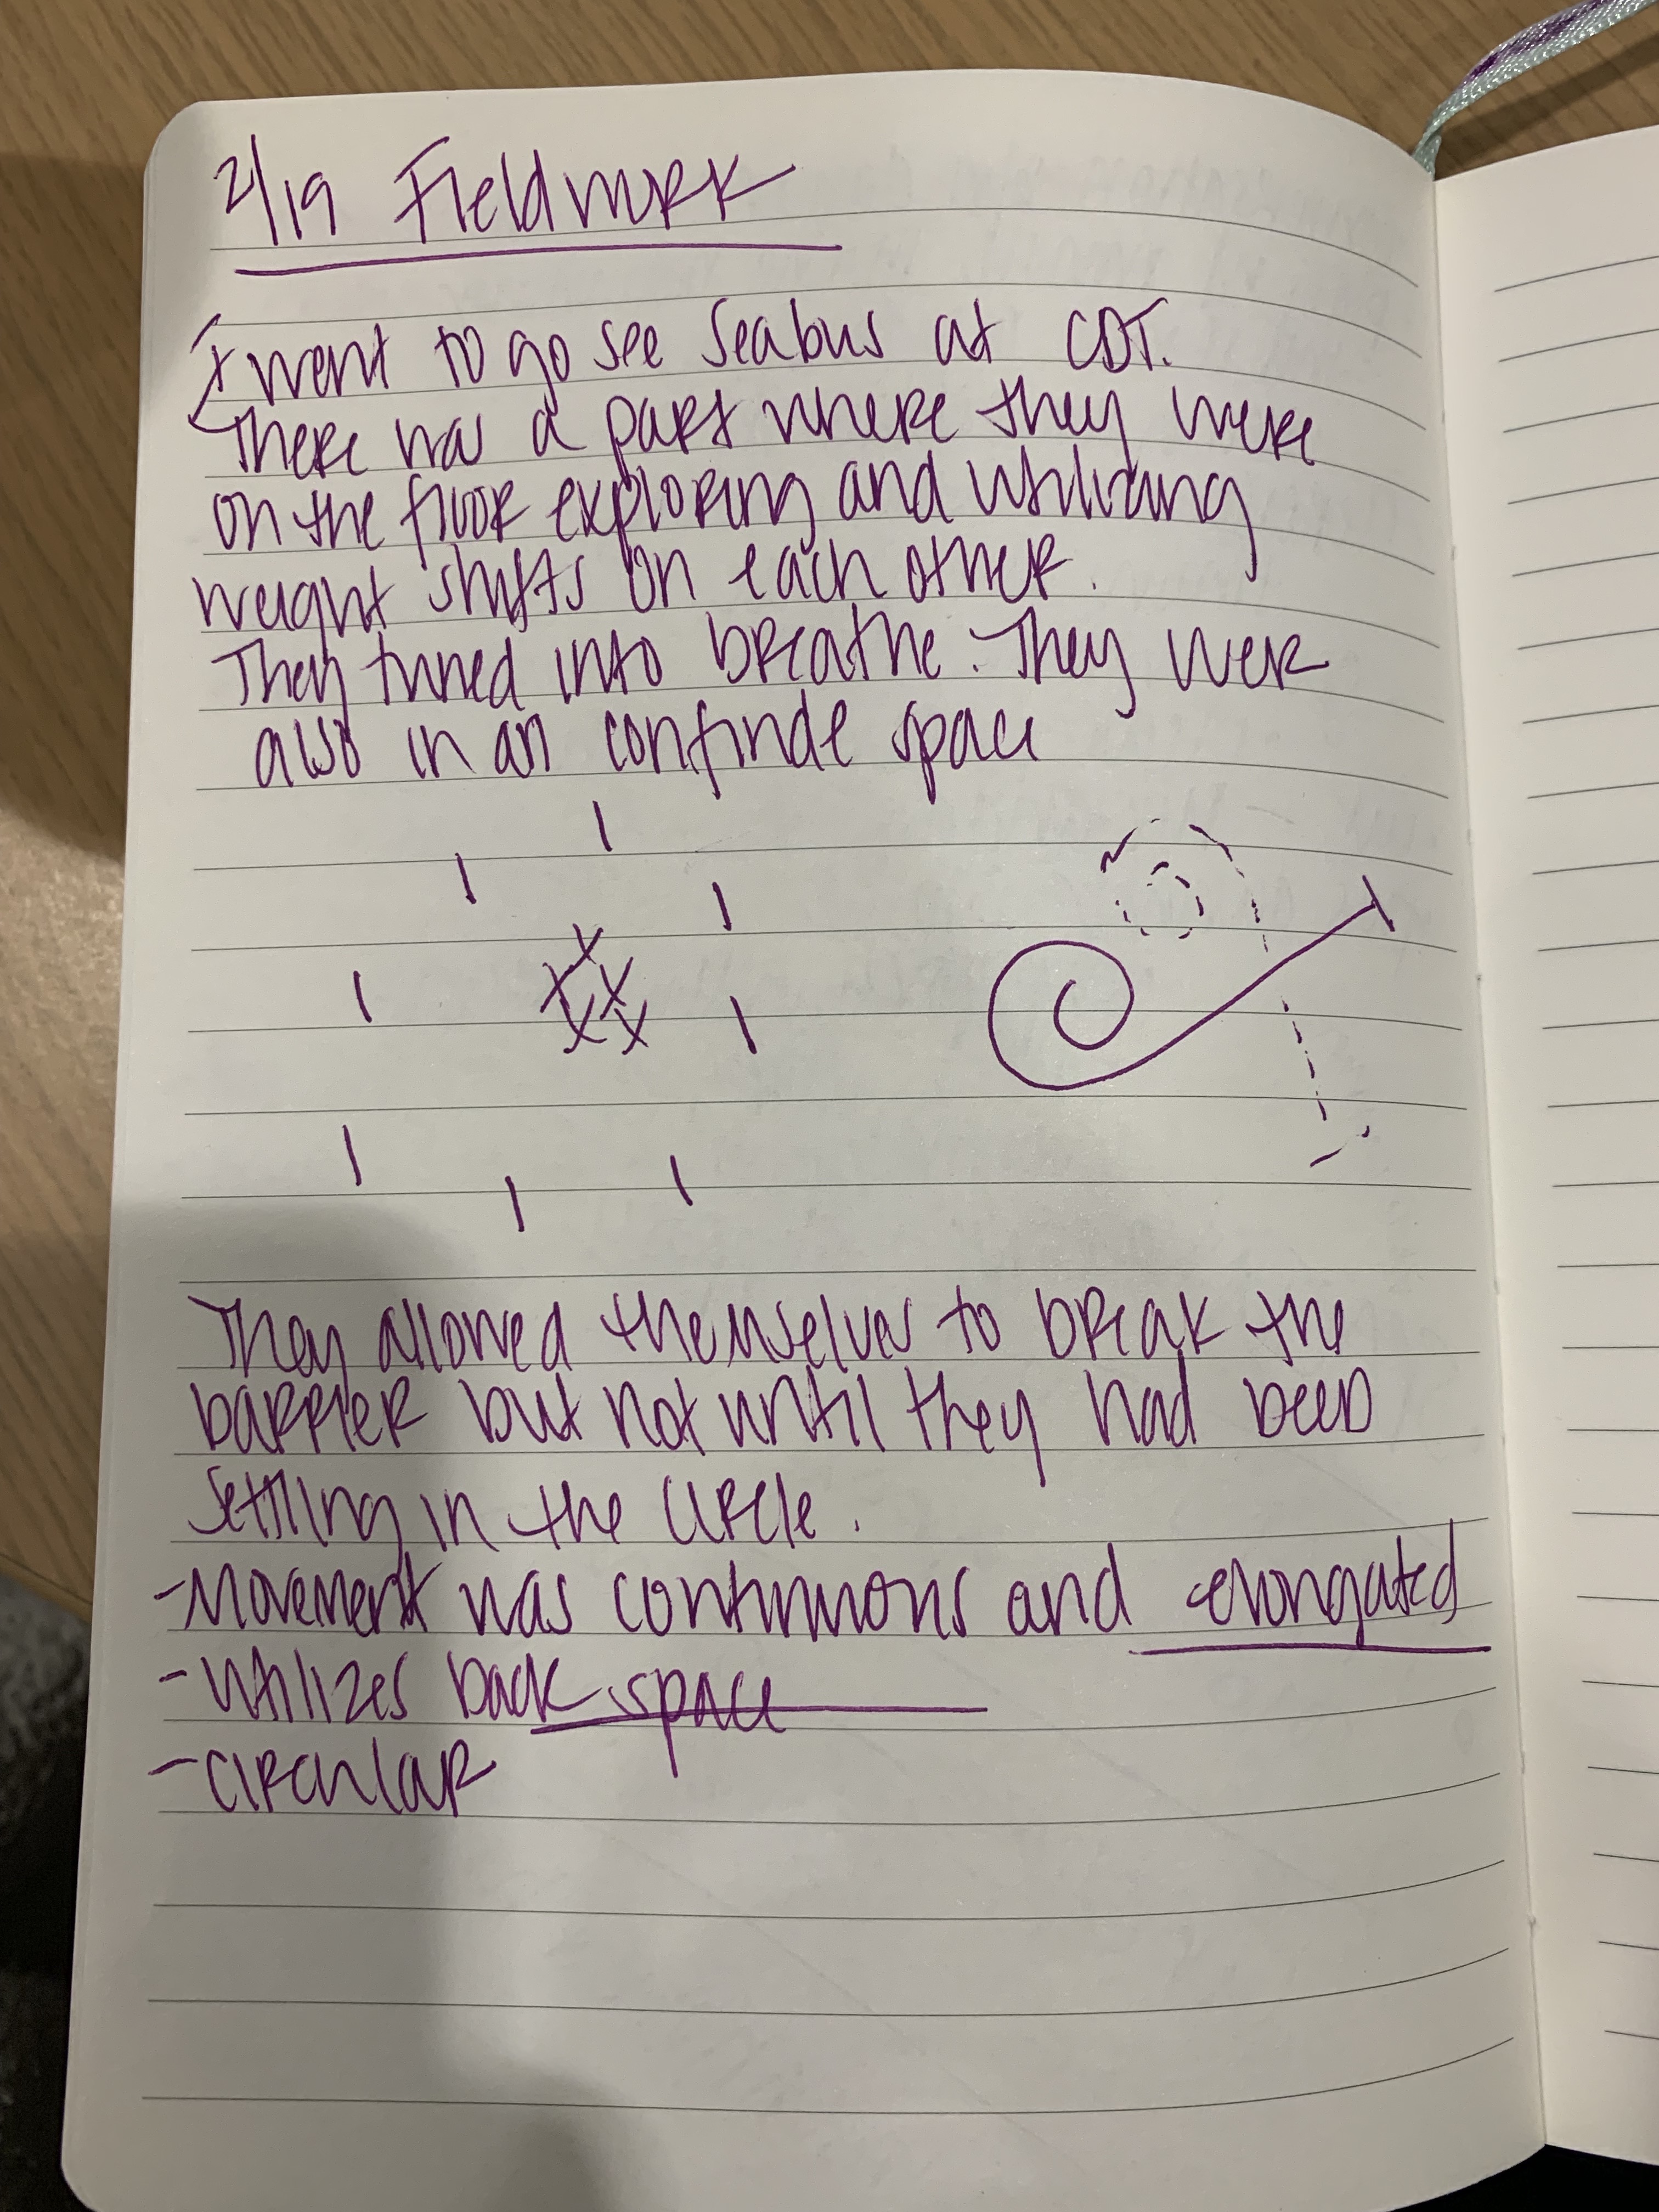 2/19 Fieldwork
I went to go see Seabus at CDT.
There was a part where they were
on the floor exploring and utilizing
weight shifts on each other.
They tuned into breathe. They were
also in an confinde space
X
X X
X X
They allowed themselves to break the
barrier but not until they had been
settling in the circle.
-Movement was continuous and elongated
-Utilizes back space
-Circular